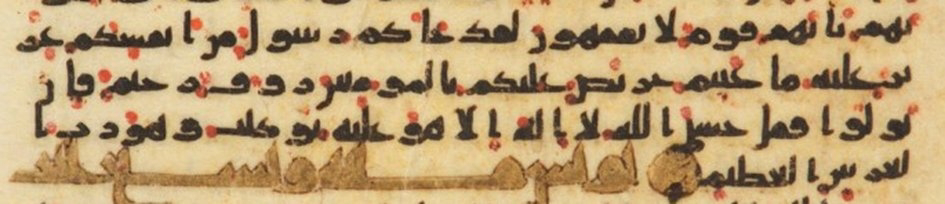 بهم بانهم قوم لا يفقهون لقد جاكم رسول من انفسكم عز
يز عليه ما عنتم حريص عليكم بالمومنين روف رحيم فان
تولوا فقل حسبي الله لا اله الا هو عليه توكلت وهو رب ا
لعرش العظيم يونس مئه وتسع